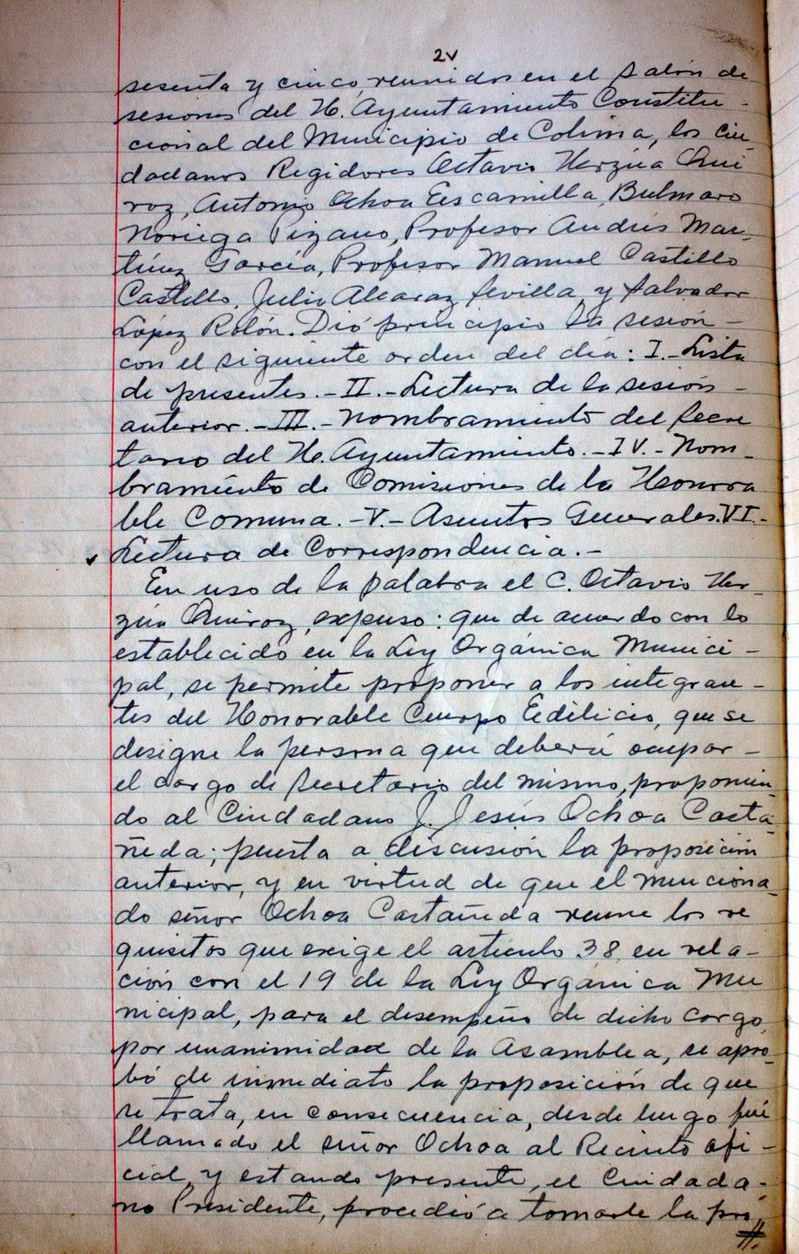 2v
sesenta y cinco, reunidos en el Salón de
sesiones del H. Ayuntamiento Constitu-
cional del Municipio de Colima, los ciu-
dadanos Regidores Octavio Herzúa Qui
roz, Antonio Ochoa Escamilla, Bulmaro
Noriega Pizano, Profesor Andrés Mar-
tínez García, Profesor Manuel Castillo
Castillo, Julio Alcaraz Sevilla, y Salvador
López Rolón. Dió principio la sesión -
con el siguiente orden del día: I.- Lista
de presentes.- II.- Lectura de la sesión -
anterior.- III.- Nombramiento del Secre
tario del H. Ayuntamiento.- IV.- Nom-
bramiento de Comisiones de la Honora
ble Comuna.- V.- Asuntos Generales. VI.-
Lectura de Correspondencia.-
En uso de la palabra el C. Octavio Her-
zúa Quiroz, expuso: que de acuerdo con lo
establecido en la Ley Orgánica Munici-
pal, se permite proponer a los integran-
tes del Honorable Cuerpo Edilicio, que se
designe la persona que deberá ocupar -
el cargo de Secretario del mismo, proponien-
do al Ciudadano J. Jesús Ochoa Casta-
ñeda; puesta a discusión la proposición
anterior, y en virtud de que el menciona-
do señor Ochoa Castañeda reune los re
quisitos que exige el artículo 38 en rela-
ción con el 19 de la Ley Orgánica Mu
nicipal, para el desempeño de dicho cargo,
por unanimidad de la Asamblea, se apro-
bó de inmediato la proposición de que
se trata, en consecuencia, desde luego fué
llamado el señor Ochoa al Recinto ofi-
cial, y estando presente, el Ciudada-
no Presidente, procedió a tomarle la pro